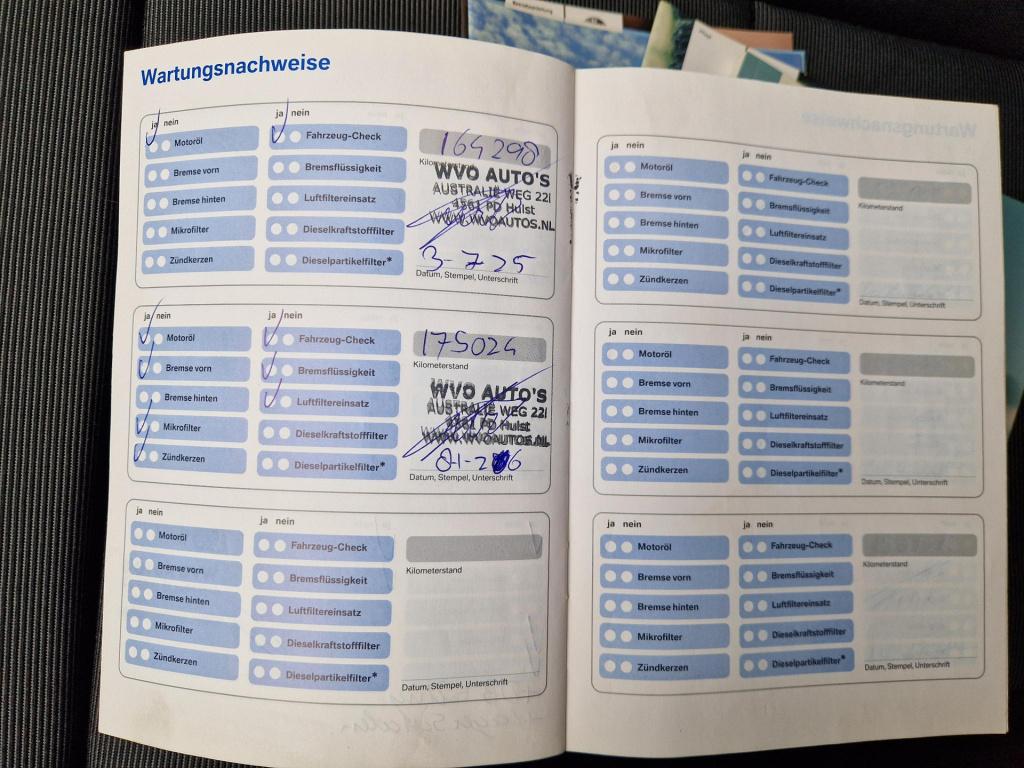 Wartungsnachweise
ja nein
ja nein
Motoröl
Fahrzeug-Check
164298
Bremse vorn
Bremsflüssigkeit
Kilometerstand
Bremse hinten
Luftfiltereinsatz
WVO AUTO'S
AUSTRALIE WEG 22i
4561 PD Hulst
WWW.WVOAUTOS.NL
Mikrofilter
Dieselkraftstofffilter
Zündkerzen
Dieselpartikelfilter*
3-7-25
Datum, Stempel, Unterschrift
ja nein
ja nein
Motoröl
Fahrzeug-Check
175024
Bremse vorn
Bremsflüssigkeit
Kilometerstand
Bremse hinten
Luftfiltereinsatz
WVO AUTO'S
AUSTRALIE WEG 22i
4561 PD Hulst
WWW.WVOAUTOS.NL
Mikrofilter
Dieselkraftstofffilter
Zündkerzen
Dieselpartikelfilter*
Datum, Stempel, Unterschrift
ja nein
ja nein
Motoröl
Fahrzeug-Check
Bremse vorn
Bremsflüssigkeit
Kilometerstand
Bremse hinten
Luftfiltereinsatz
Mikrofilter
Dieselkraftstofffilter
Zündkerzen
Dieselpartikelfilter*
Datum, Stempel, Unterschrift
ja nein
ja nein
Motoröl
Fahrzeug-Check
Bremse vorn
Bremsflüssigkeit
Kilometerstand
Bremse hinten
Luftfiltereinsatz
Mikrofilter
Dieselkraftstofffilter
Zündkerzen
Dieselpartikelfilter*
Datum, Stempel, Unterschrift
ja nein
ja nein
Motoröl
Fahrzeug-Check
Bremse vorn
Bremsflüssigkeit
Kilometerstand
Bremse hinten
Luftfiltereinsatz
Mikrofilter
Dieselkraftstofffilter
Zündkerzen
Dieselpartikelfilter*
Datum, Stempel, Unterschrift
ja nein
ja nein
Motoröl
Fahrzeug-Check
Bremse vorn
Bremsflüssigkeit
Kilometerstand
Bremse hinten
Luftfiltereinsatz
Mikrofilter
Dieselkraftstofffilter
Zündkerzen
Dieselpartikelfilter*
Datum, Stempel, Unterschrift